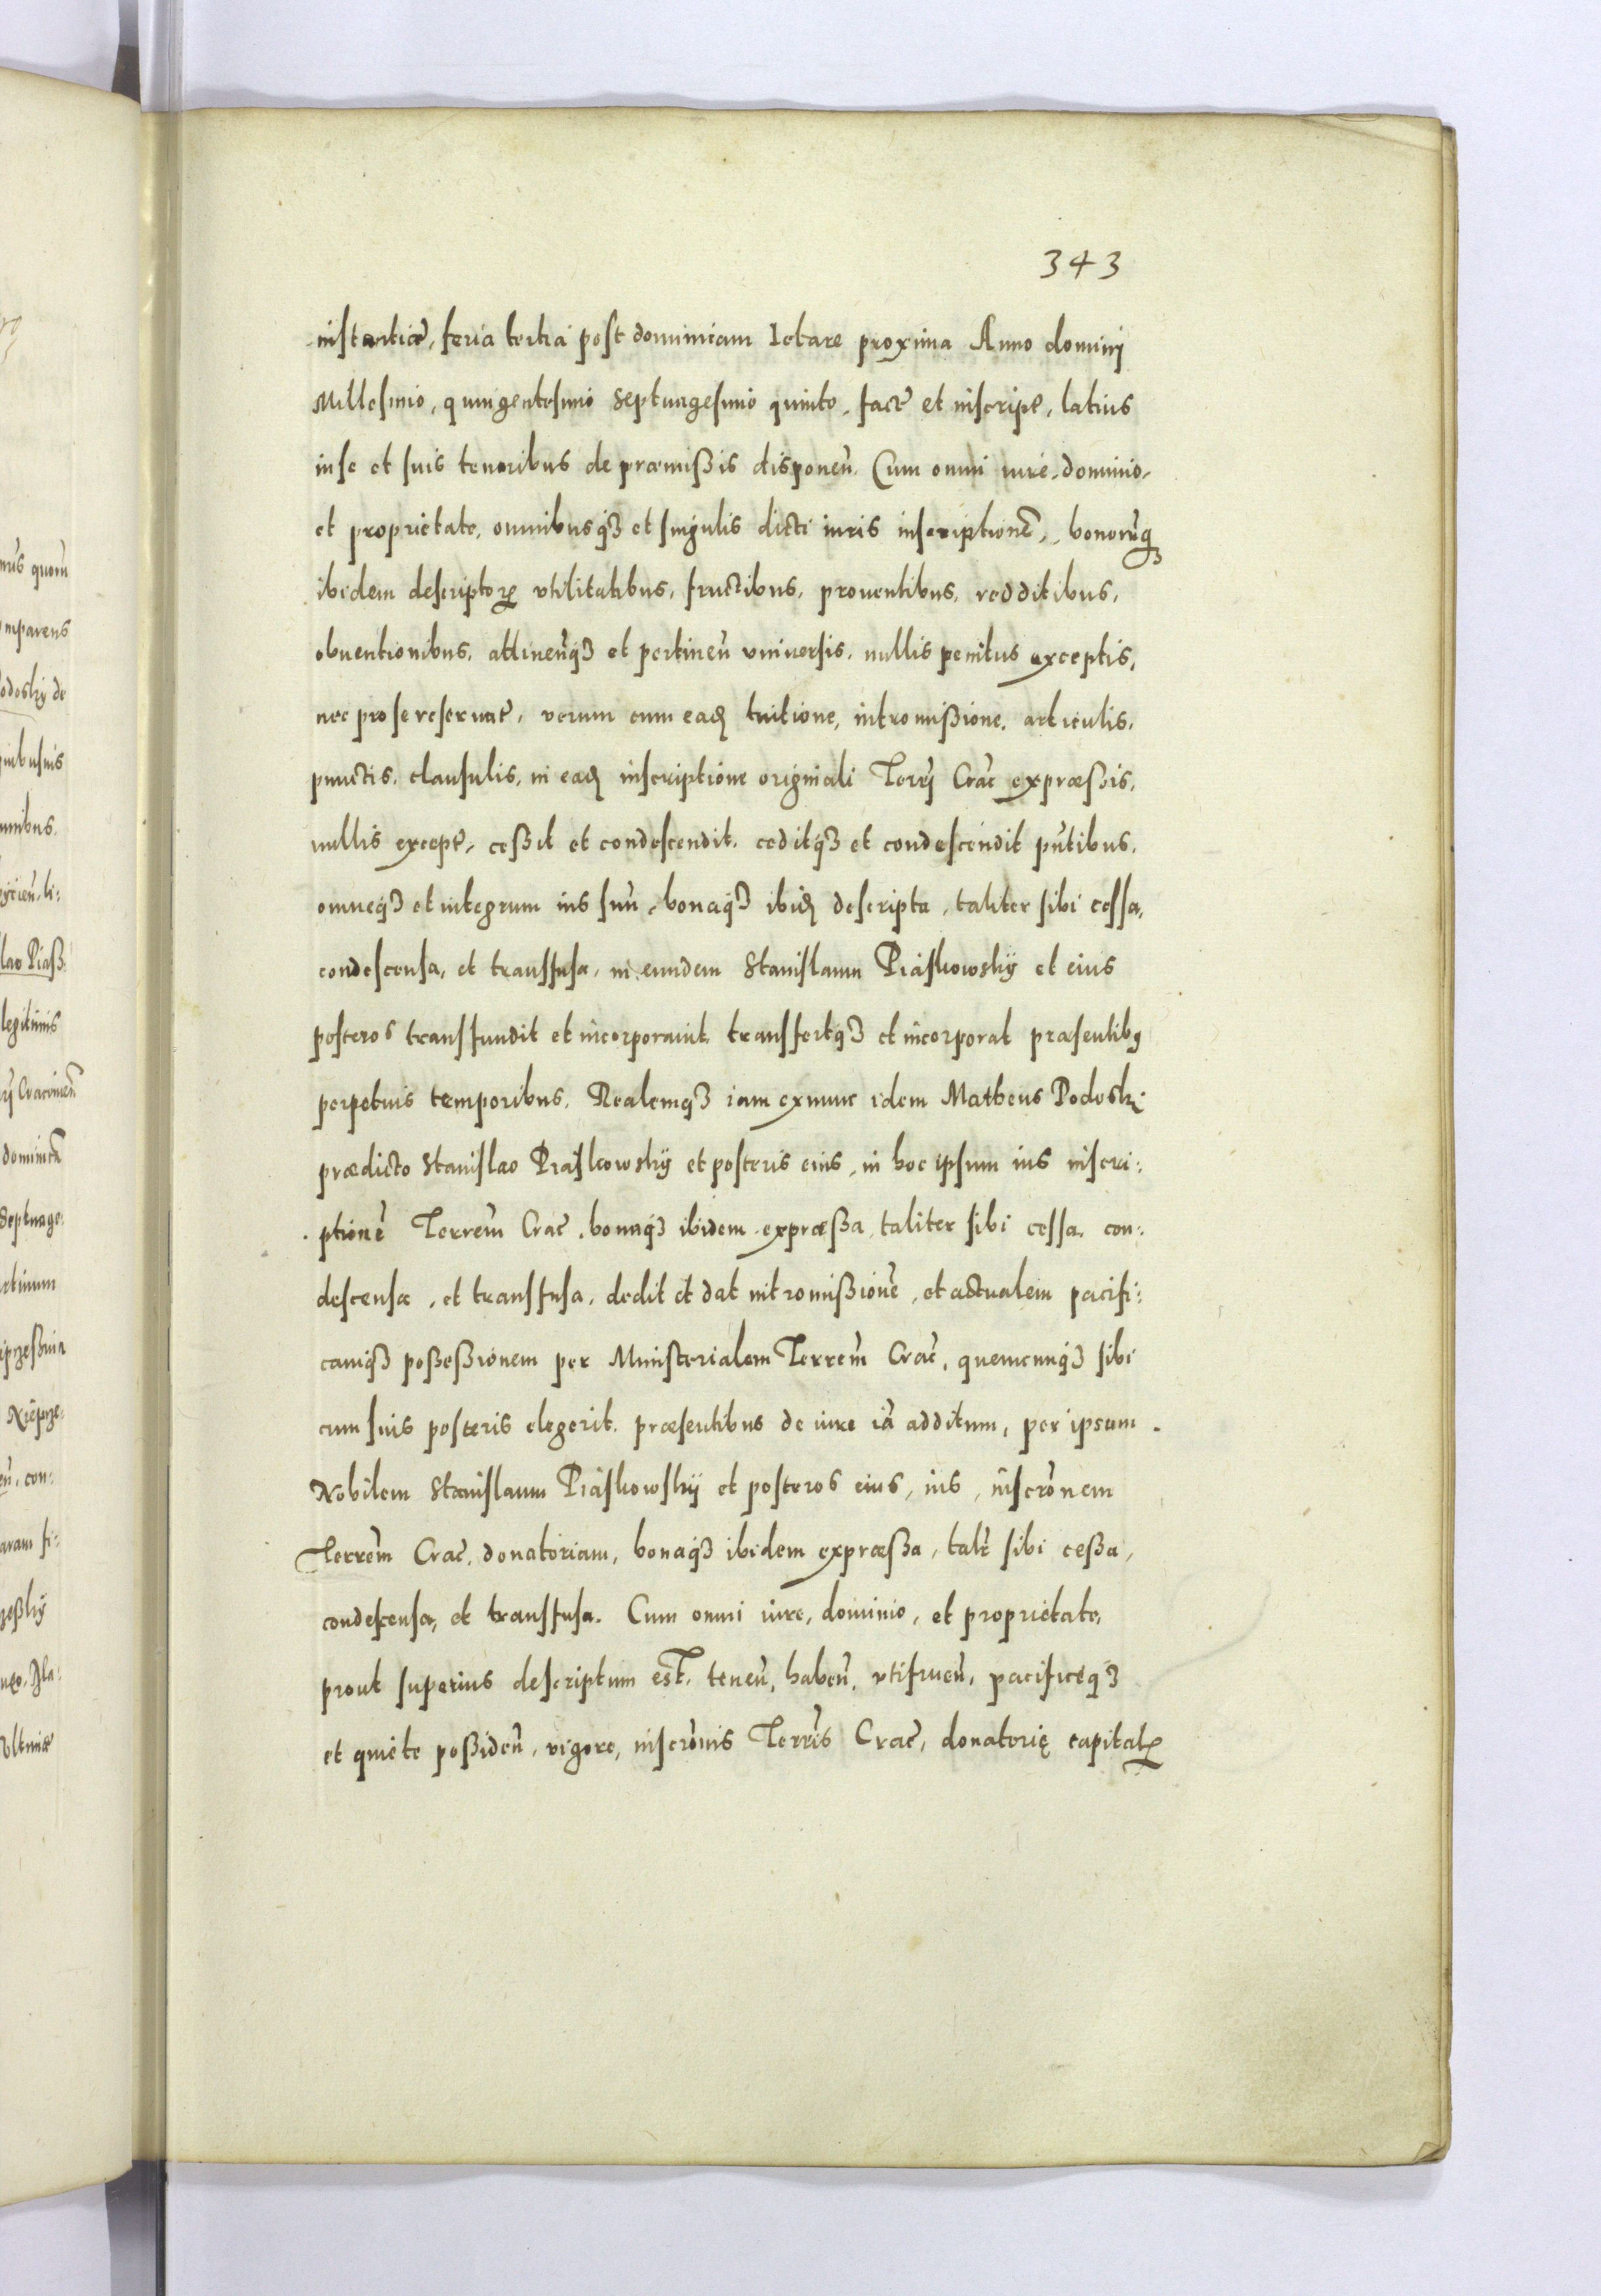 343
instantiæ, feria tertia post dominicam letare proxima Anno dominj
Millesimo, quingentesimo Septuagesimo quinto, fact̃ et inscript̃, latius
inse et suis tenoribus de præmißis disponeñ. Cum omni iure, dominio,
et proprietate, omnibusqꝫ et singulis dicti iuris inscriptioneɱ, bonorũqꝫ
ibidem descriptoꝝ vtilitatibus, fructibus, prouentibus, redditibus,
obuentionibus, attineñqꝫ et pertineñ vniuersis, nullis penitus exceptis,
nec pro se reseruat̃, verum cum eadꝫ tuitione, intromißione, articulis,
punctis, clausulis, in eadꝫ inscriptione originali Terrj Crac̃ expræßis,
nullis except̃, ceßit et condescendit, ceditqꝫ et condescendit pñtibus,
omneqꝫ et integrum ius suũ, bonaqꝫ ibidꝫ descripta, taliter sibi cessa,
condescensa, et transfusa, in eundem Stanislaum Piaskowskÿ et eius
posteros transfundit et incorporauit, transfertqꝫ et incorporat præsentibꝯ
perpetuis temporibus. Realemqꝫ iam exnunc idem Matheus Podoskj
prædicto Stanislao Piaskowskÿ et posteris eius, in hoc ipsum ius inscri:
ptionẽ Terreñ Crac̃, bonaqꝫ ibidem expræßa, taliter sibi cessa, con:
descensa, et transfusa, dedit et dat intromißionẽ, et actualem pacifi:
camqꝫ poßeßionem per Ministerialem Terreñ Crac̃, quemcunqꝫ sibi
cum suis posteris elegerit, præsentibus de iure iã additum, per ipsum
Nobilem Stanislaum Piaskowskÿ et posteros eius, ius, inscrõnem
Terreñ Crac̃, donatoriam, bonaqꝫ ibidem expræßa, talr̃ sibi ceßa,
condescensa, et transfusa. Cum omni iure, dominio, et proprietate,
prout superius descriptum est, teneñ, habeñ, vtifrueñ, pacificeqꝫ
et quiete poßideñ, vigore, inscrõnis Terrẽs Crac̃, donatorię capitalꝝ